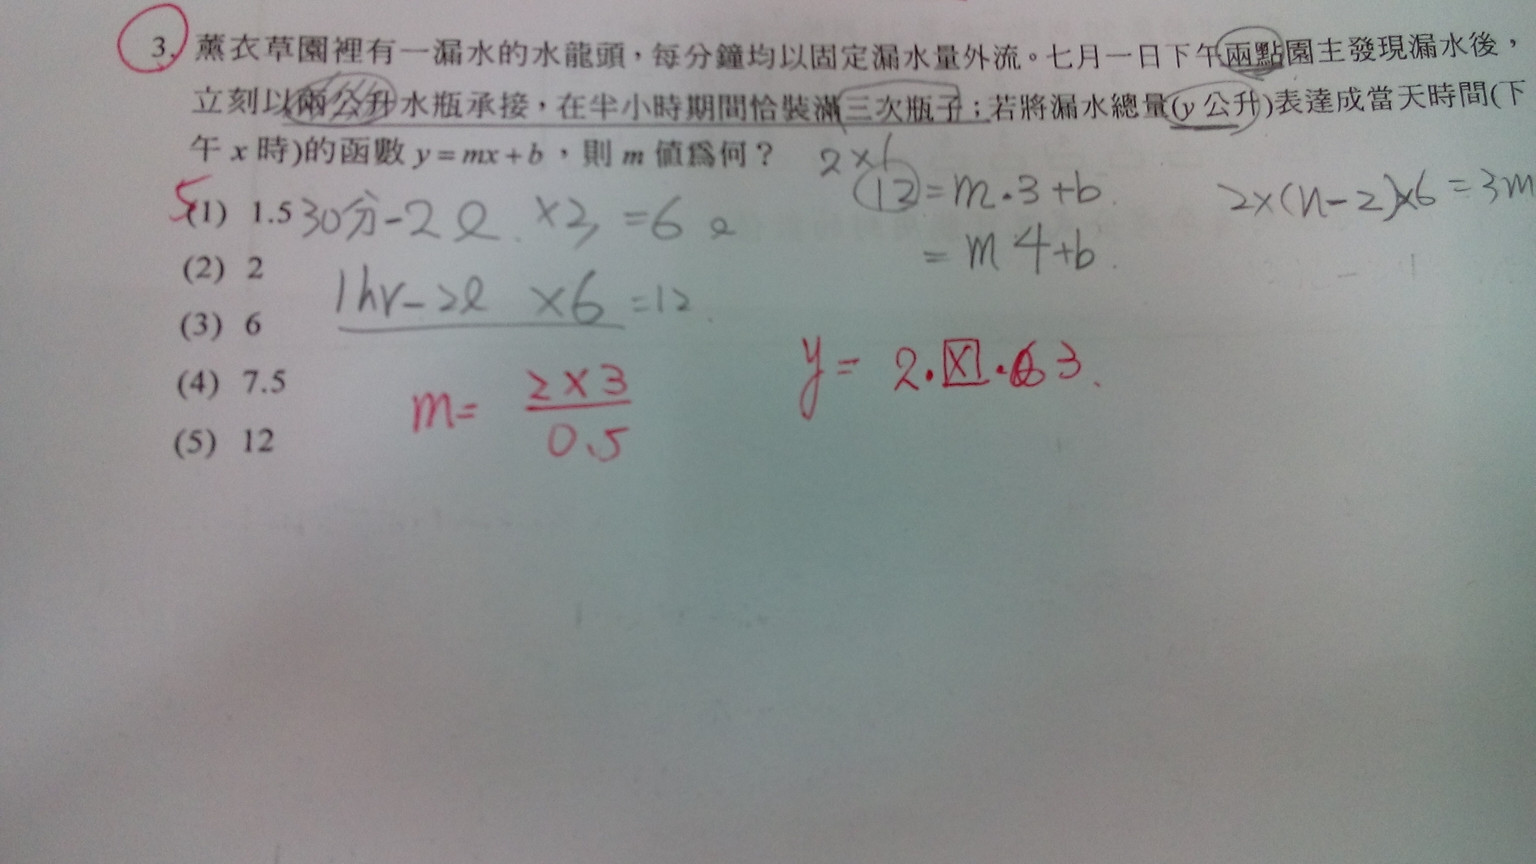 3. 薰衣草園裡有一漏水的水龍頭，每分鐘均以固定漏水量外流。七月一日下午兩點園主發現漏水後，
立刻以兩公升水瓶承接，在半小時期間恰裝滿三次瓶子；若將漏水總量(y 公升)表達成當天時間(下
午 x 時)的函數 y=mx+b，則 m 值為何？
2×6
(12)=m·3+b.
2×(n-2)×6=3m
5
(1) 1.5
30分-2ℓ. ×3 =6ℓ
= m 4+b.
(2) 2
1hr-2ℓ ×6 =12.
(3) 6
y= 2·x·63.
(4) 7.5
m= 2×3
0.5
(5) 12